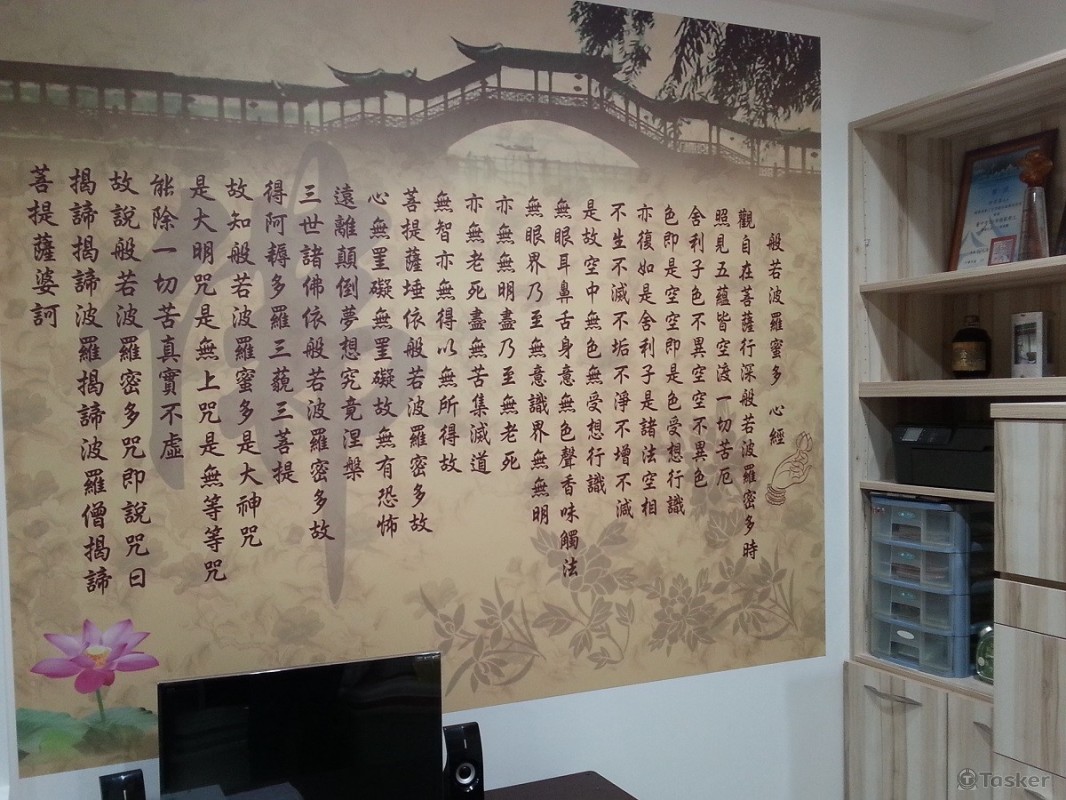 般若波羅蜜多 心經
觀自在菩薩行深般若波羅密多時
照見五蘊皆空渡一切苦厄
舍利子色不異空空不異色
色即是空空即是色受想行識
亦復如是舍利子是諸法空相
不生不滅不垢不淨不增不減
是故空中無色無受想行識
無眼耳鼻舌身意無色聲香味觸法
無眼界乃至無意識界無無明
亦無無明盡乃至無老死
亦無老死盡無苦集滅道
無智亦無得以無所得故
菩提薩埵依般若波羅密多故
心無罣礙無罣礙故無有恐怖
遠離顛倒夢想究竟涅槃
三世諸佛依般若波羅密多故
得阿耨多羅三藐三菩提
故知般若波羅蜜多是大神咒
是大明咒是無上咒是無等等咒
能除一切苦真實不虛
故說般若波羅密多咒即說咒曰
揭諦揭諦波羅揭諦波羅僧揭諦
菩提薩婆訶
佛
Tasker